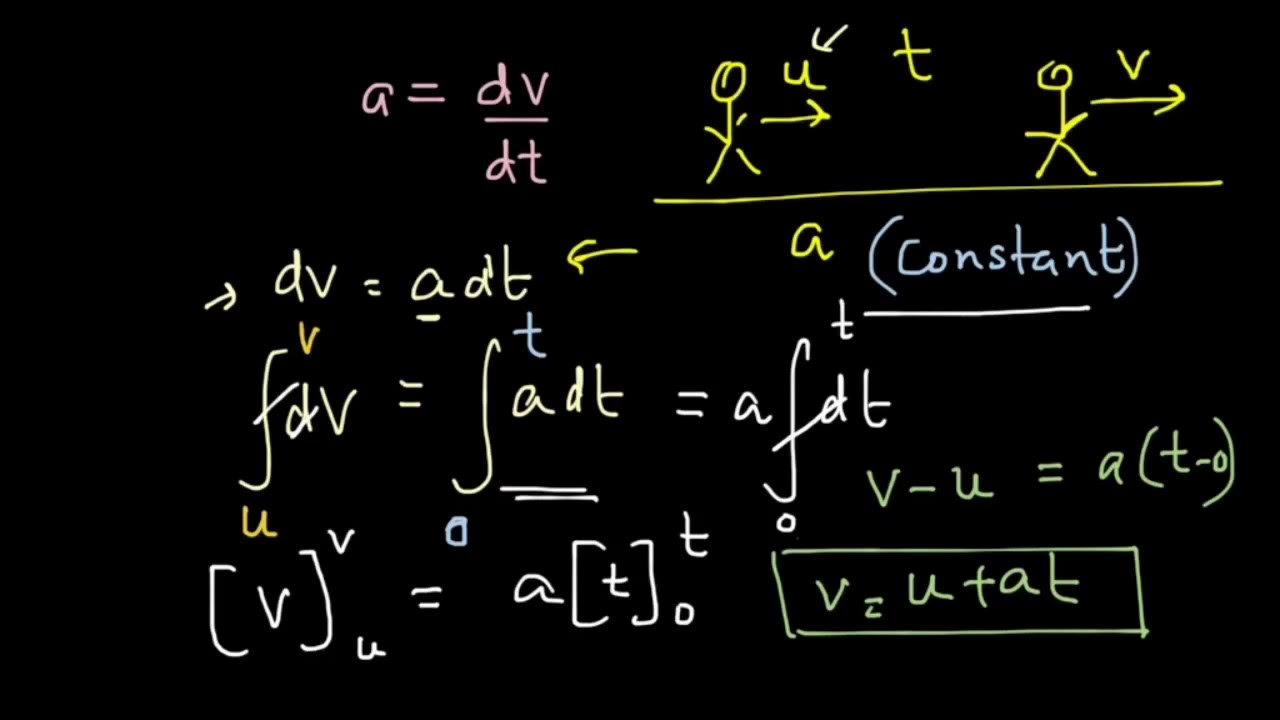 a = dv/dt
u t v
a (constant)
→ dv = a dt ←
∫_u^v dv = ∫_0^t a dt = a ∫_0^t dt
v - u = a(t-0)
[v]_u^v = a[t]_0^t
v = u + at